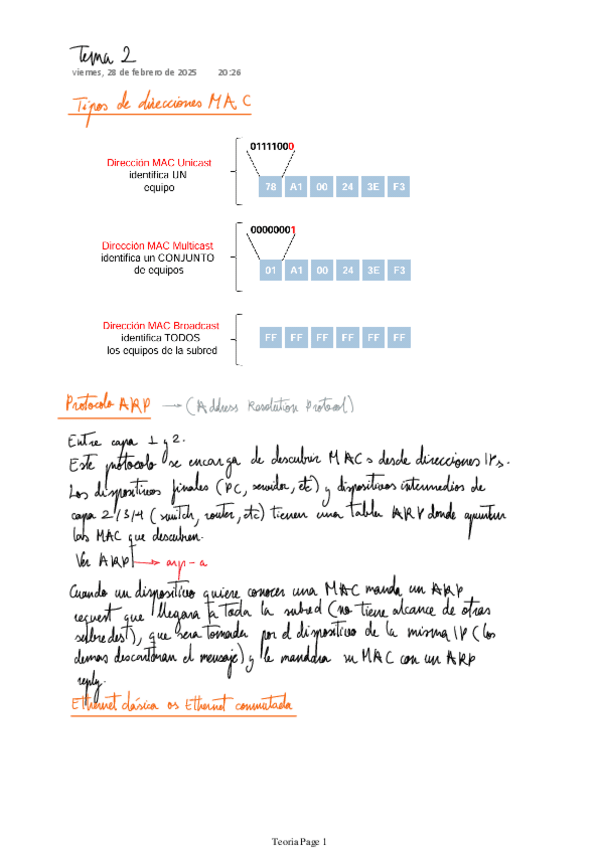 Tema 2
viernes, 28 de febrero de 2025 20:26
Tipos de direcciones MAC
01111000
Dirección MAC Unicast
identifica UN
equipo
78 A1 00 24 3E F3
00000001
Dirección MAC Multicast
identifica un CONJUNTO
de equipos
01 A1 00 24 3E F3
Dirección MAC Broadcast
identifica TODOS
los equipos de la subred
FF FF FF FF FF FF
Protocolo ARP → (Address Resolution Protocol)
Entre capa 1 y 2.
Este protocolo se encarga de descubrir MACs desde direcciones IPs.
Los dispositivos finales (PC, servidor, etc) y dispositivos intermedios de
capa 2/3/4 (switch, router, etc) tienen una tabla ARP donde apuntan
las MAC que descubren.
Ver ARP → arp -a
Cuando un dispositivo quiere conocer una MAC manda un ARP
request que llegara a toda la subred (no tiene alcance de otras
subredes), que sera tomada por el dispositivo de la misma IP (los
demas descartaran el mensaje) y le mandara su MAC con un ARP
reply.
Ethernet clásica vs Ethernet conmutada
Teoria Page 1